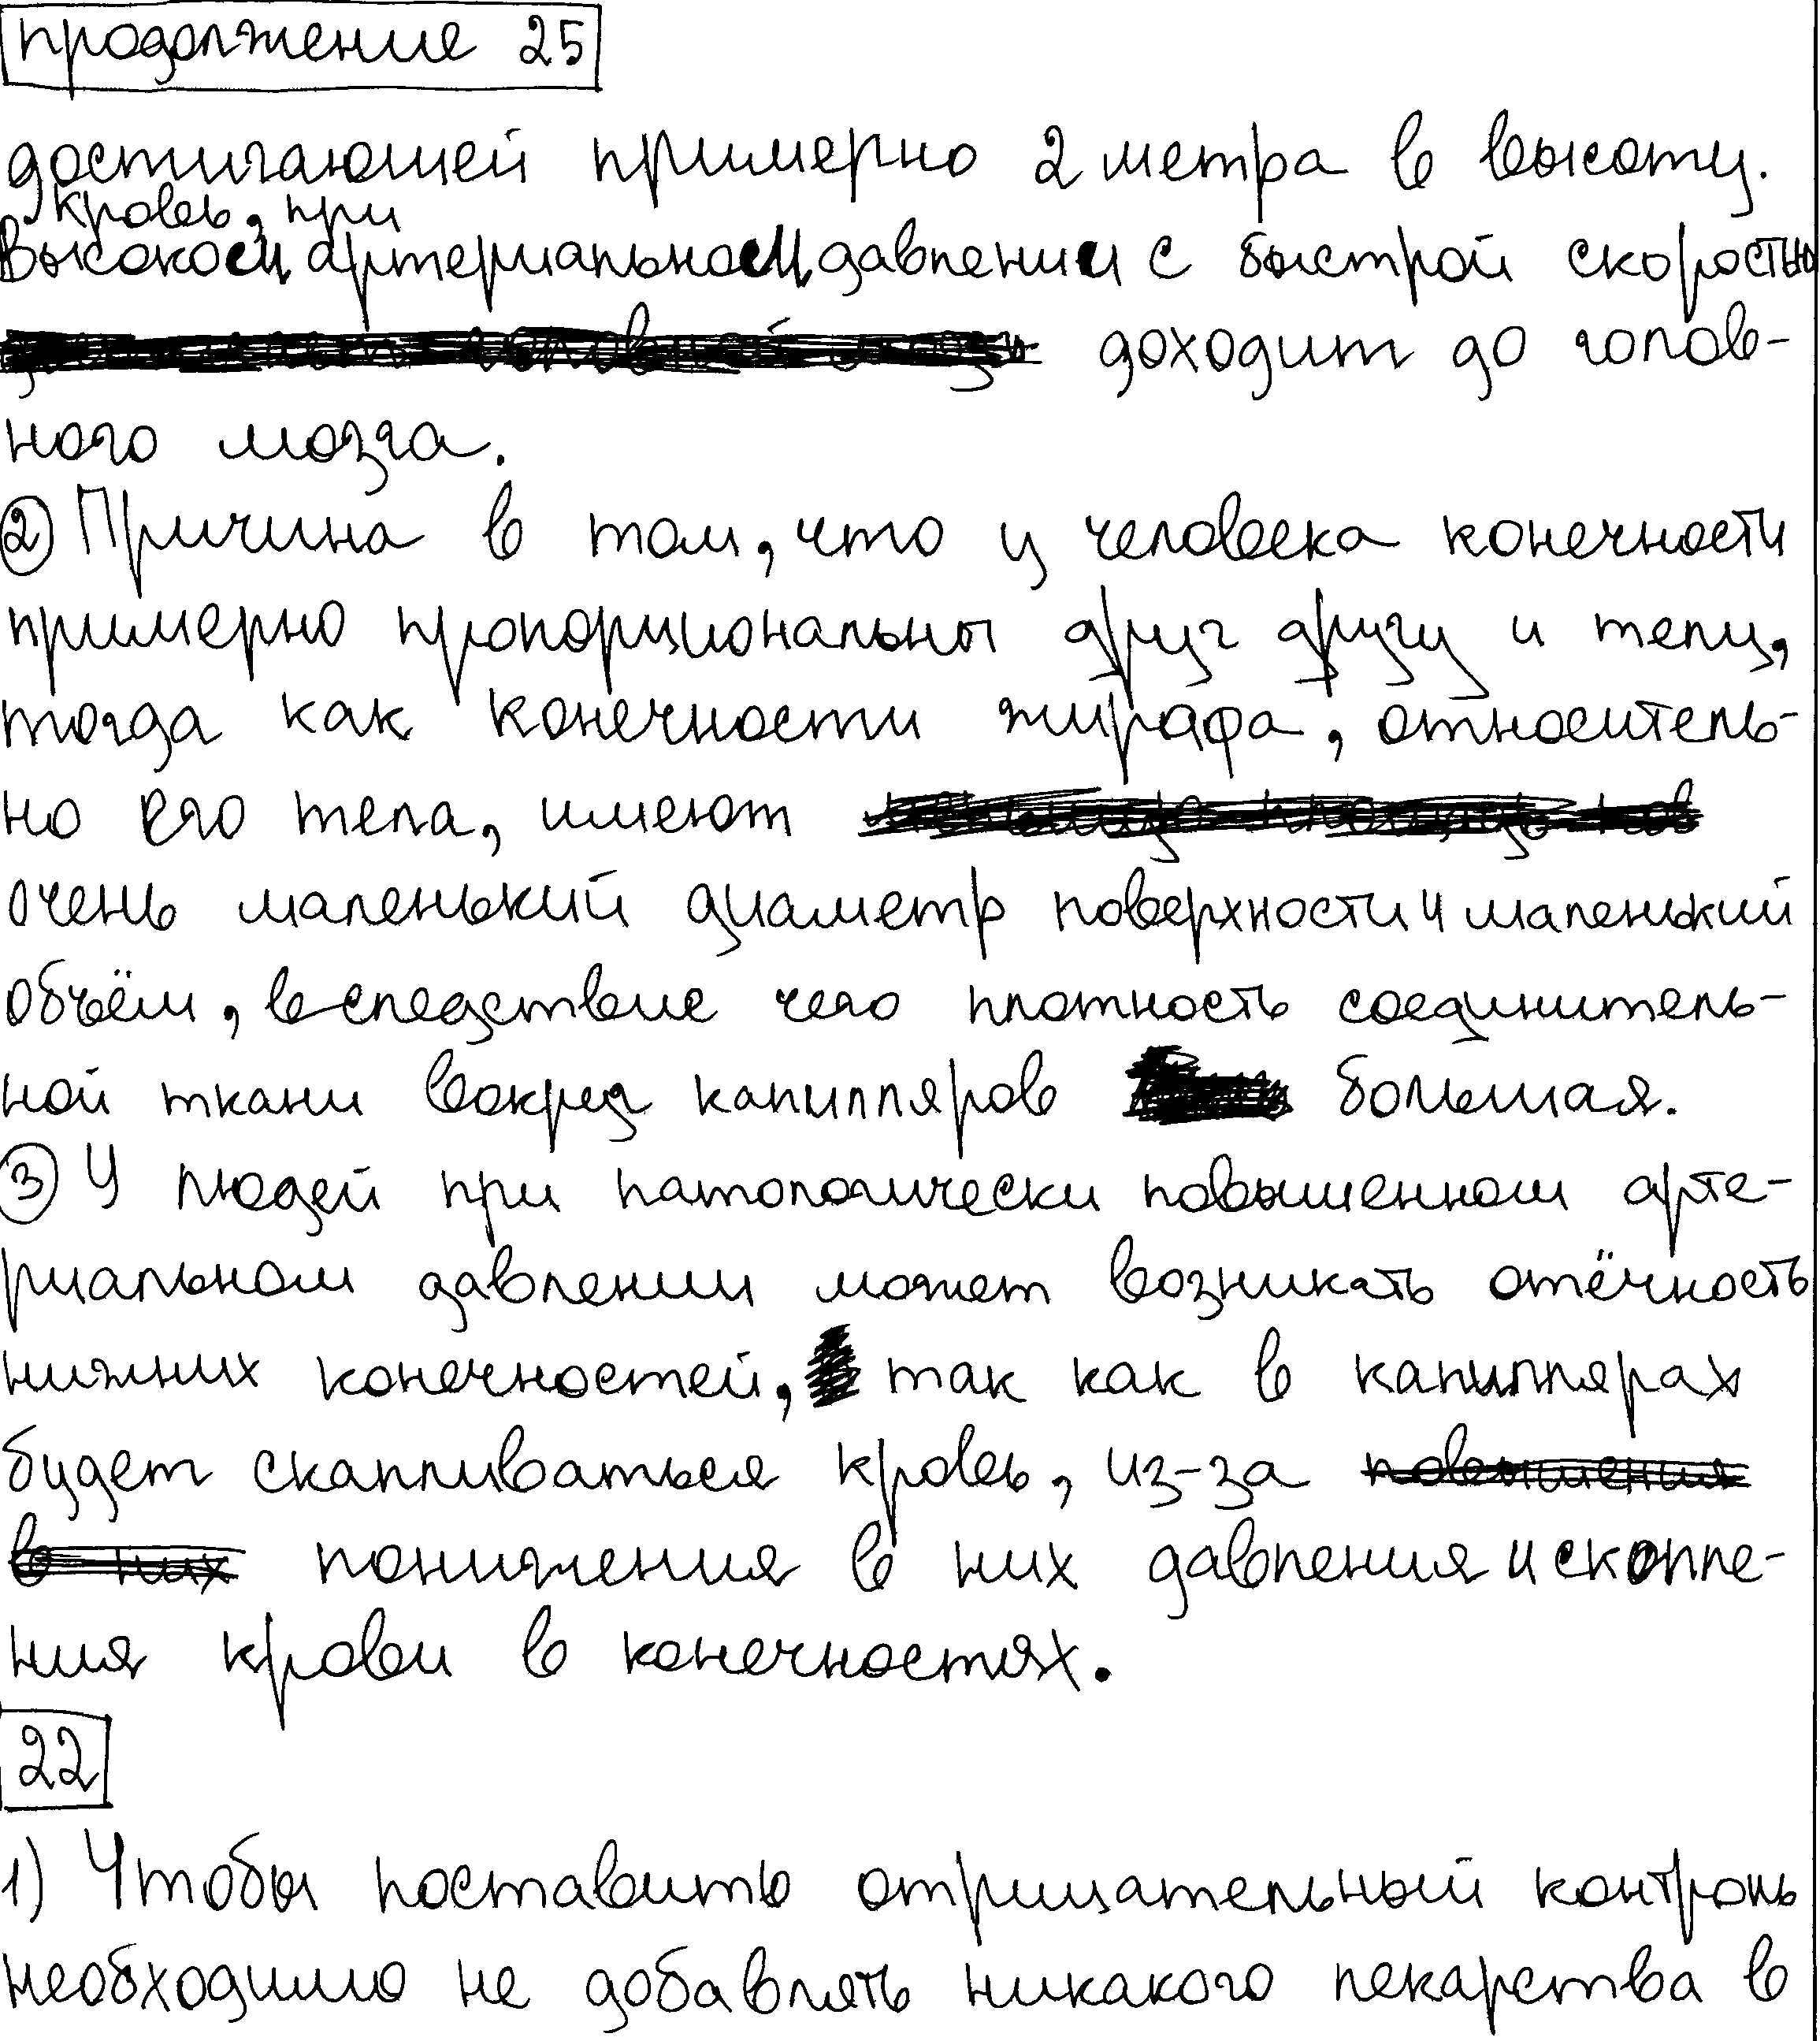 продолжение 25
достигающей примерно 2 метра в высоту.
кровь, при
Высоком артериальном давлении с быстрой скоростью
доходит до голов-
ного мозга.
② Причина в том, что у человека конечности
примерно пропорциональны друг другу и телу,
тогда как конечности жирафа, относитель-
но его тела, имеют
очень маленький диаметр поверхности и маленький
объём, вследствие чего плотность соединитель-
ной ткани вокруг капилляров большая.
③ У людей при патологически повышенном арте-
риальном давлении может возникать отёчность
нижних конечностей, так как в капиллярах
будет скапливаться кровь, из-за повышения
в них понижения в них давления и скопле-
ния крови в конечностях.
22
1) Чтобы поставить отрицательный контроль
необходимо не добавлять никакого лекарства в